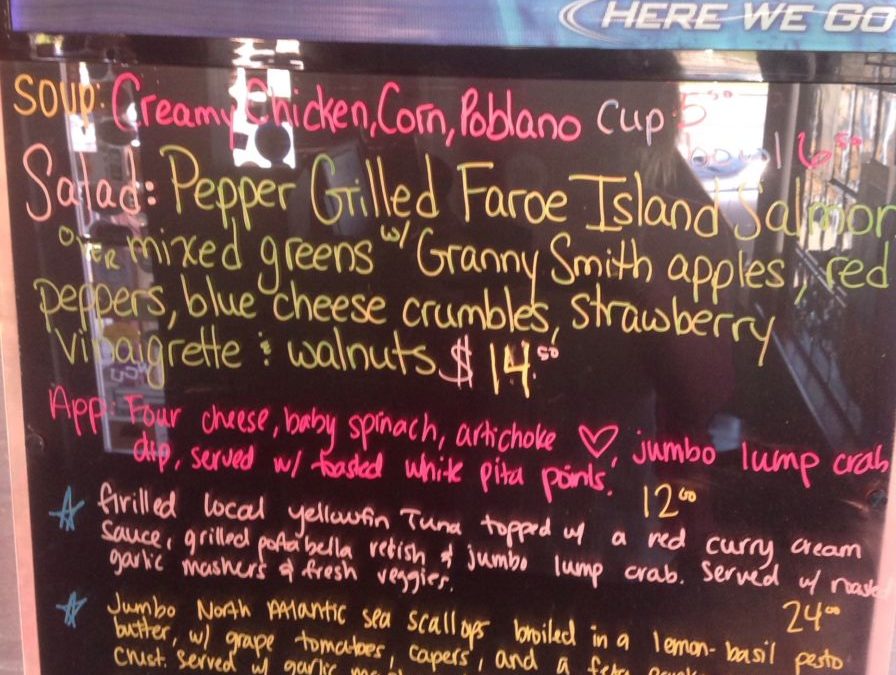 HERE WE GO
Soup: Creamy Chicken, Corn, Poblano Cup 5.50
bowl 6.50
Salad: Pepper Grilled Faroe Island Salmon
OVER mixed greens w/ Granny Smith apples, red
peppers, blue cheese crumbles, strawberry
vinaigrette & walnuts $14.50
App: Four cheese, baby spinach, artichoke ♡, jumbo lump crab
dip, served w/ toasted white pita points. 12.00
☆ Grilled local yellowfin Tuna topped w/ a red curry cream
sauce, grilled portabella relish & jumbo lump crab. Served w/
garlic mashers & fresh veggies. 24.00
☆ Jumbo North Atlantic sea scallops broiled in a lemon-basil pesto
butter, w/ grape tomatoes, capers, and a feta
crust. served w/ garlic